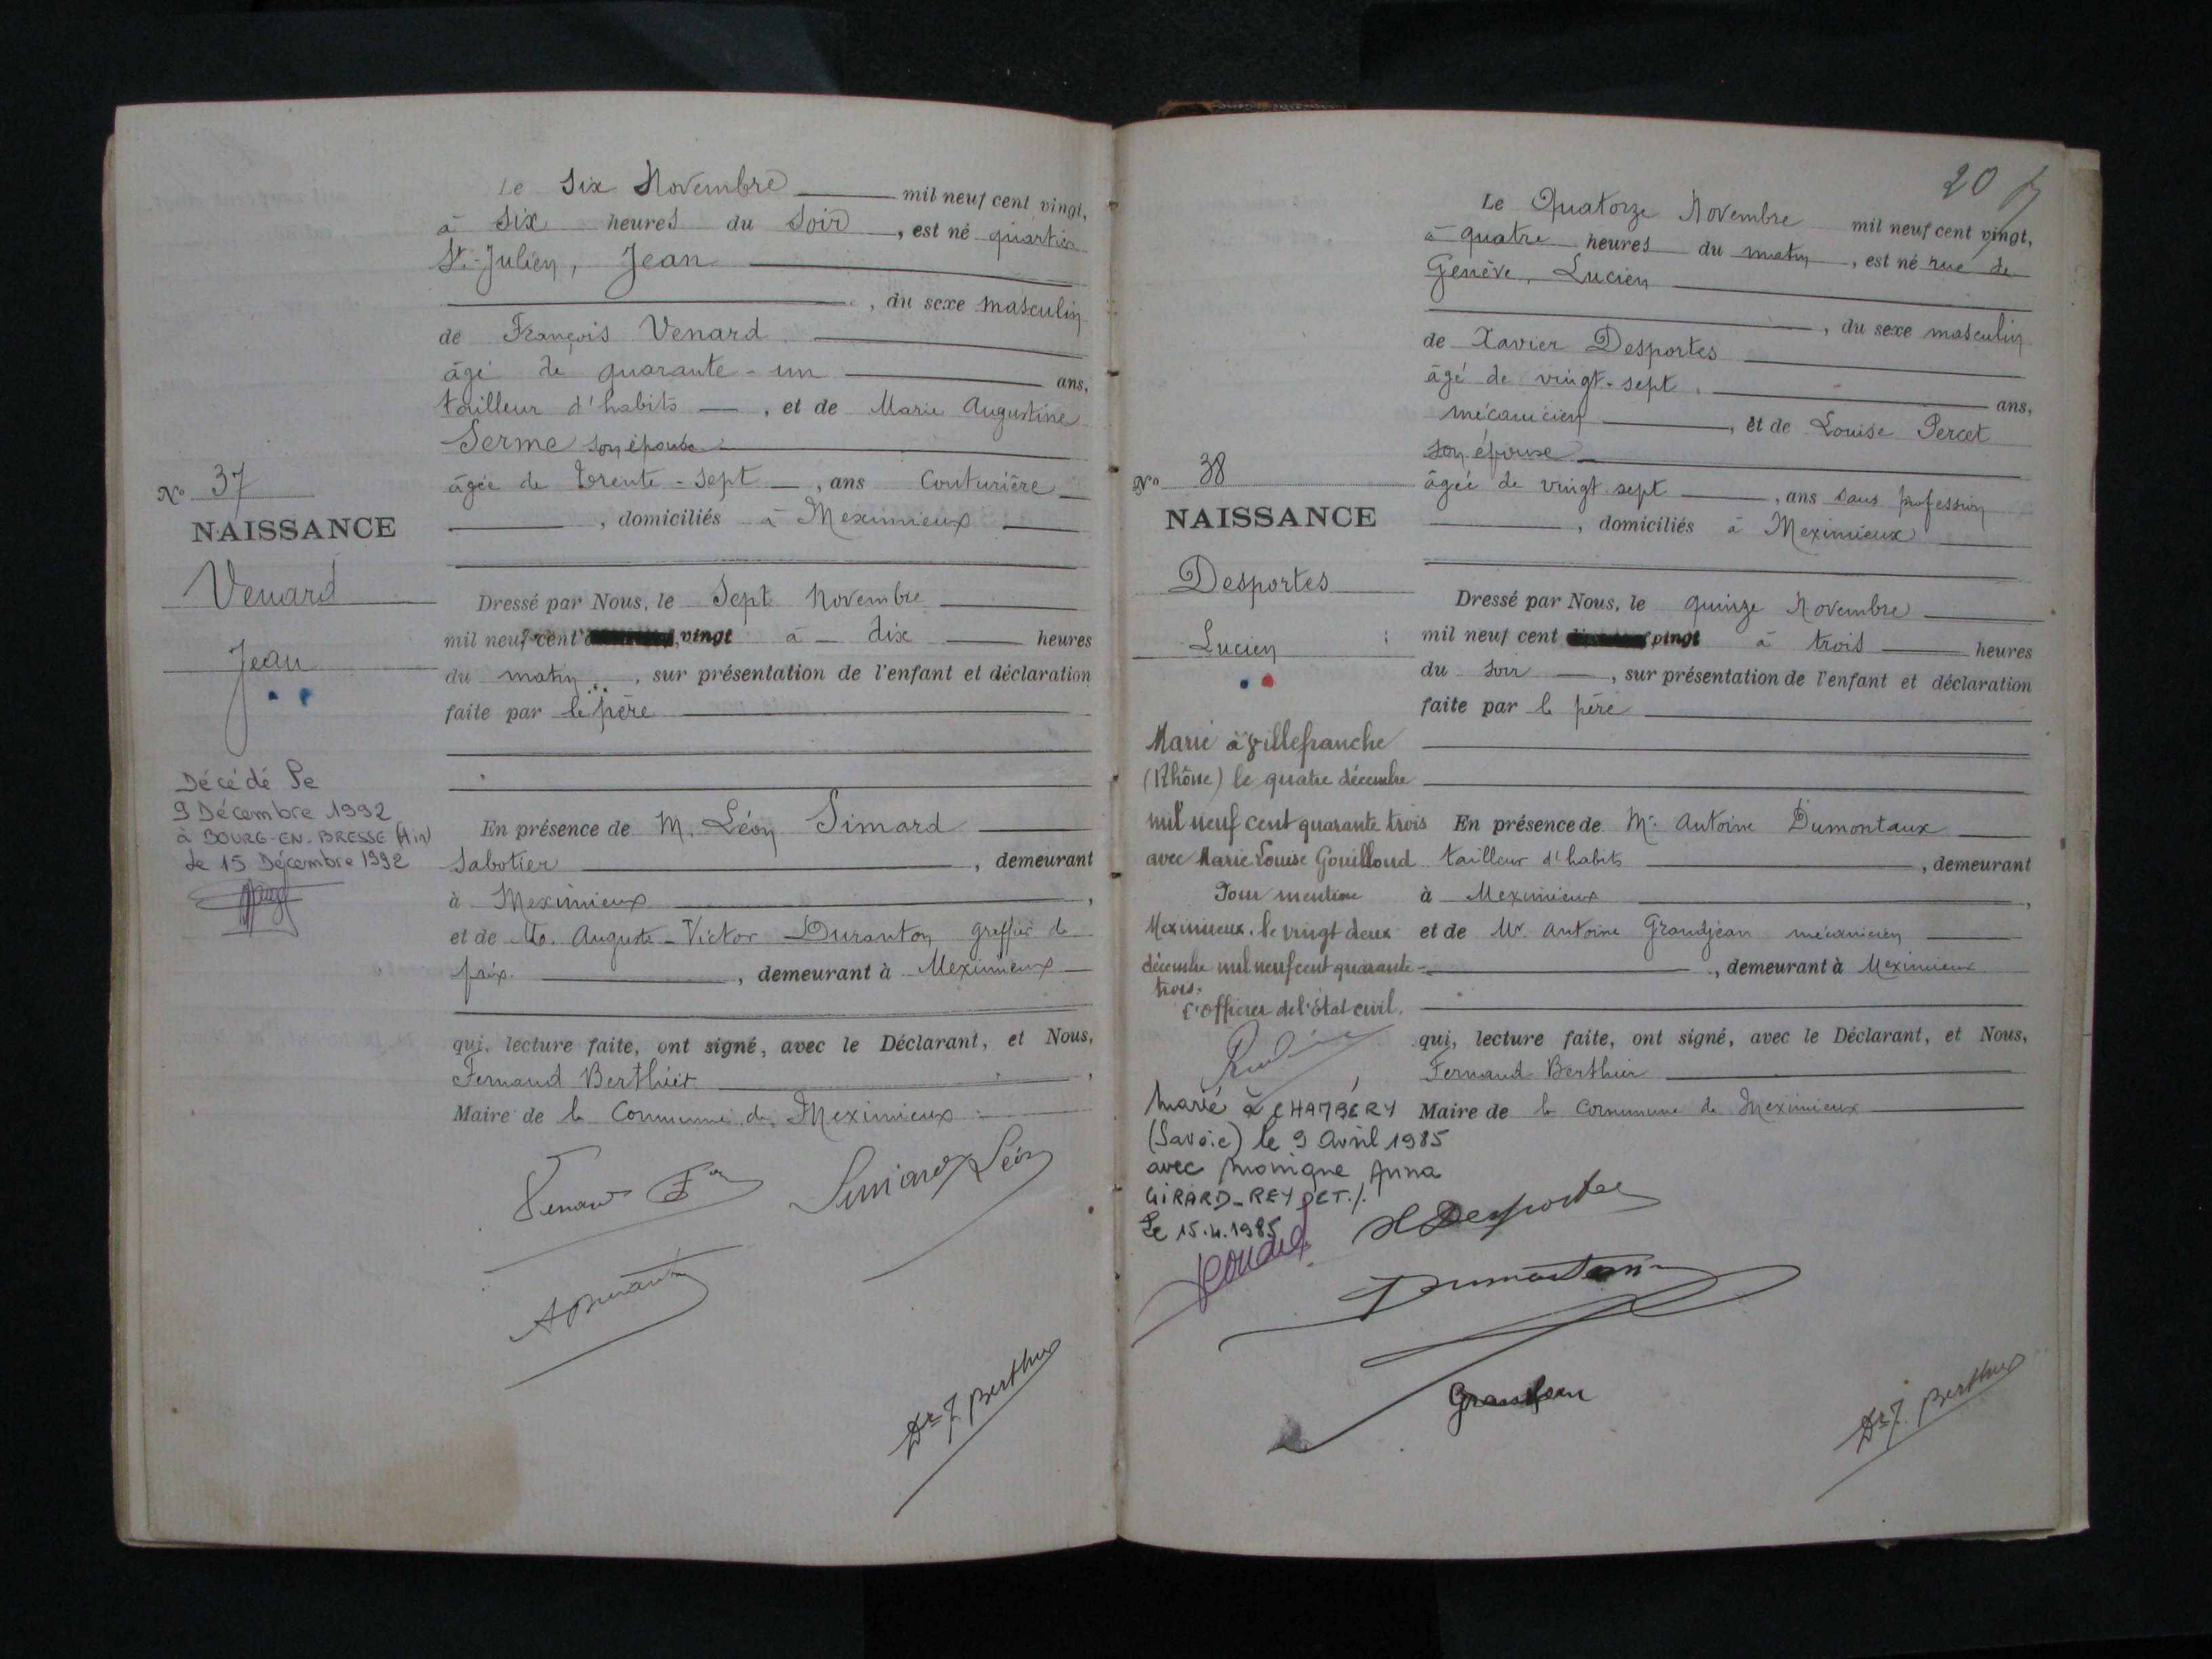 Le Six Novembre mil neuf cent vingt,
à six heures du soir, est né quartier
St-Julien, Jean
, du sexe masculin
de François Venard
âgé de quarante-un ans,
tailleur d'habits, et de Marie Augustine
Serme son épouse
âgée de trente-sept, ans Couturière
, domiciliés à Meximieux
No 37
NAISSANCE
Venard
Jean
Dressé par Nous, le Sept Novembre
mil neuf cent vingt à dix heures
du matin, sur présentation de l'enfant et déclaration
faite par le père
Décédé le
9 Décembre 1992
à BOURG-EN-BRESSE (Ain)
Le 15 Décembre 1992
En présence de M. Léon Simard
Sabotier, demeurant
à Meximieux,
et de Mo. Auguste-Victor Duranton greffier de
paix, demeurant à Meximieux
qui, lecture faite, ont signé, avec le Déclarant, et Nous,
Fernand Berthier,
Maire de la Commune de Meximieux
Dr F. Berthier
20
Le Quatorze Novembre mil neuf cent vingt,
à quatre heures du matin, est né rue de
Genève, Lucien
, du sexe masculin
de Xavier Desportes
âgé de vingt-sept ans,
mécanicien, et de Louise Percet
son épouse
âgée de vingt sept, ans sans profession
, domiciliés à Meximieux
No 38
NAISSANCE
Desportes
Lucien
Dressé par Nous, le quinze Novembre
mil neuf cent vingt à trois heures
du soir, sur présentation de l'enfant et déclaration
faite par le père
Marié à Villefranche
(Rhône) le quatre décembre
mil neuf cent quarante trois
avec Marie Louise Gouilloud
Pour mention
Meximieux, le vingt deux
décembre mil neuf cent quarante-
trois.
L'officier de l'état civil,
En présence de Mr. Antoine Dumontaux
tailleur d'habits, demeurant
à Meximieux,
et de Mr. Antoine Grandjean mécanicien
, demeurant à Meximieux
qui, lecture faite, ont signé, avec le Déclarant, et Nous,
Fernand Berthier
Maire de la Commune de Meximieux
Marié à CHAMBÉRY
(Savoie) le 9 Avril 1985
avec Monique Anna
GIRARD-REYDET./.
Le 15.4.1985
X Desportes
Dumontaux
Grandjean
Dr F. Berthier